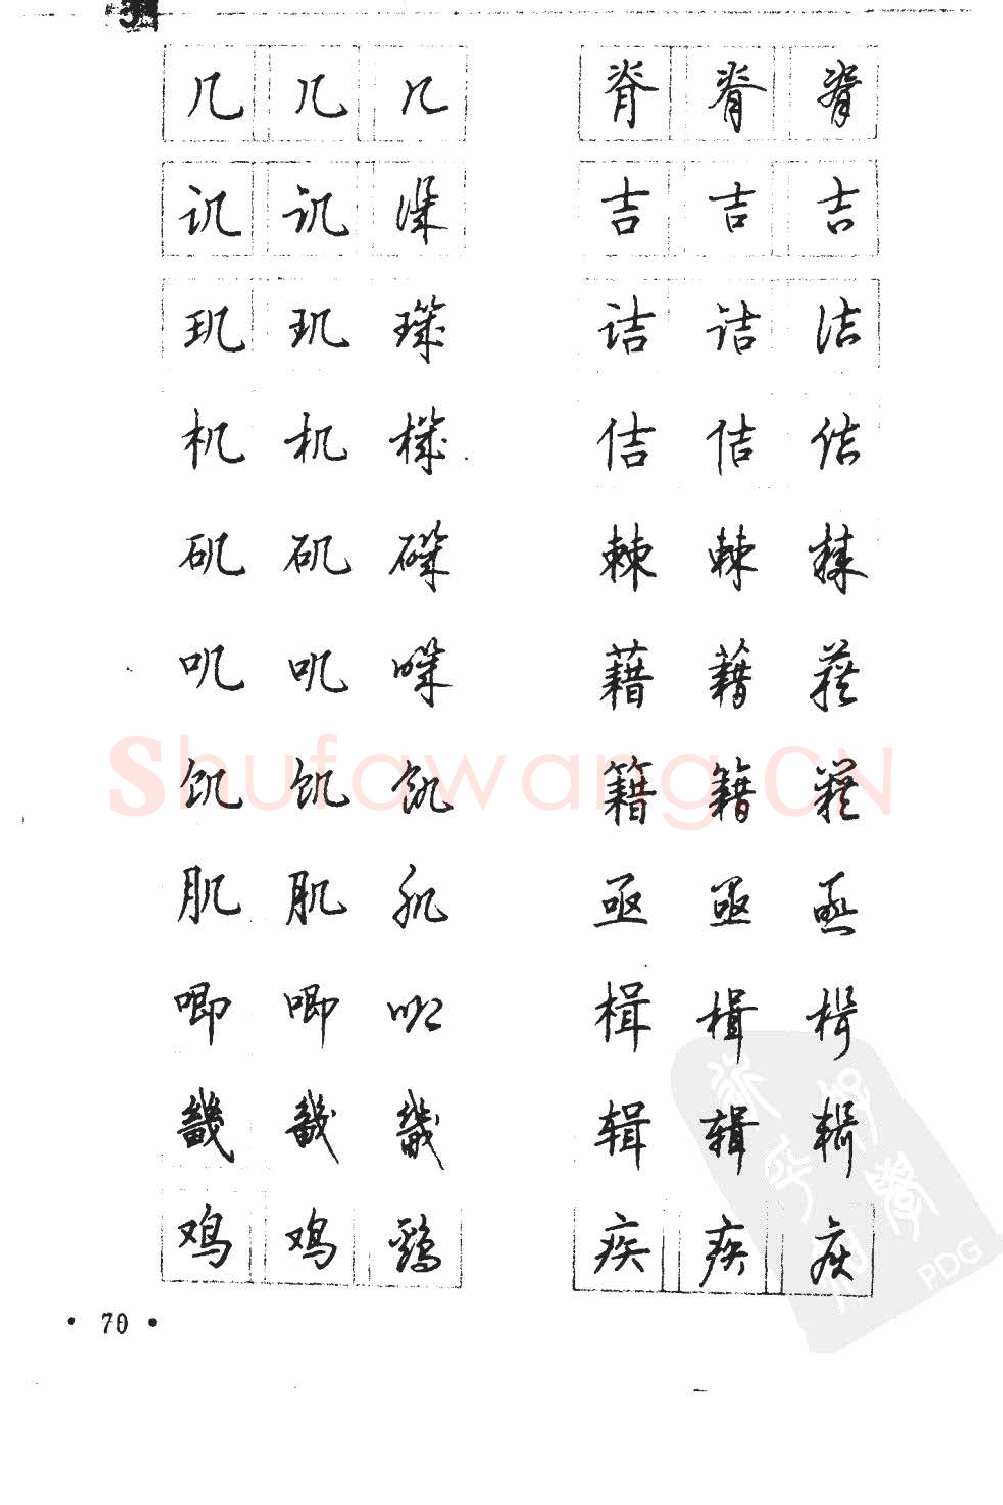 几 几 几 脊 脊 脊
讥 讥 譏 吉 吉 吉
玑 玑 璣 诘 诘 诘
机 机 機 佶 佶 佶
矶 矶 磯 棘 棘 棘
叽 叽 嘰 藉 藉 藉
饥 饥 飢 籍 籍 籍
肌 肌 肌 亟 亟 亟
唧 唧 唧 楫 楫 楫
畿 畿 畿 辑 辑 輯
鸡 鸡 鷄 疾 疾 疾
Shufawang.CN
PDG
• 70 •